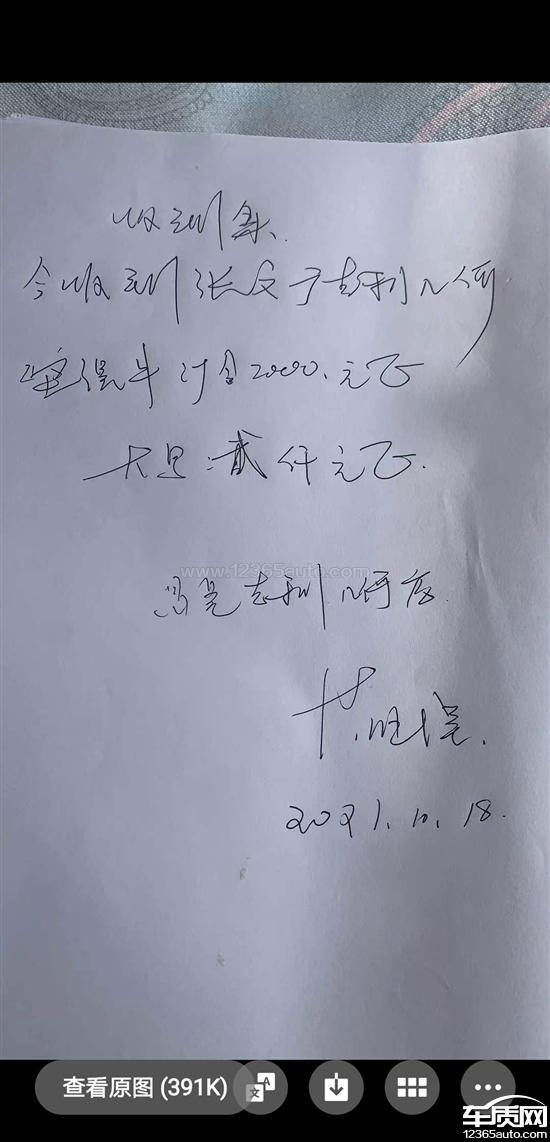 收到条
今收到张文于吉利几何
订金2000.元正
大写:贰仟元正.
www.12365auto.com
吉利几何店.
2021.10.18.
查看原图 (391K)
车质网
12365auto.com